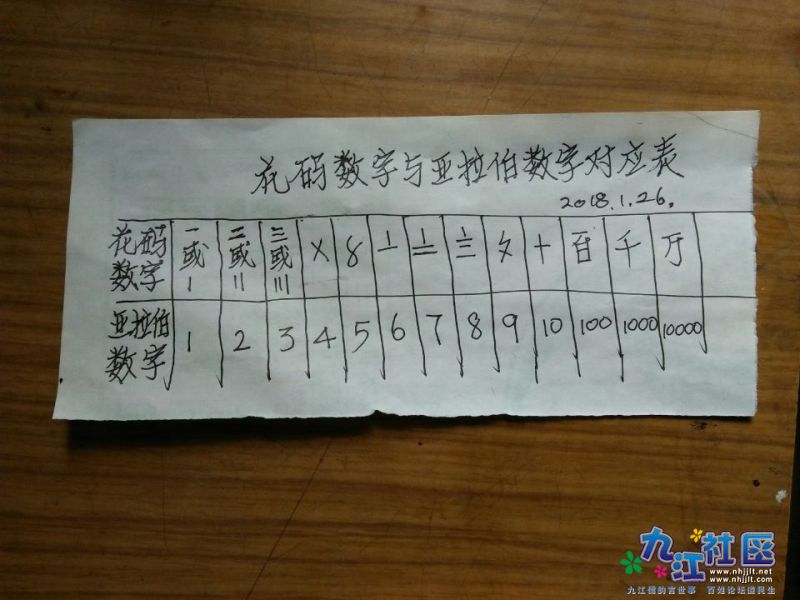 花码数字与亚拉伯数字对应表
2018.1.26.
花码数字 一或〡 二或〢 三或〣 〤 〥 〦 〧 〨 〩 十 百 千 万
亚拉伯数字 1 2 3 4 5 6 7 8 9 10 100 1000 10000
九江社区
www.nhjjlt.net
www.nhjjlt.com
九江儒韵言世事 百姓论坛道民生